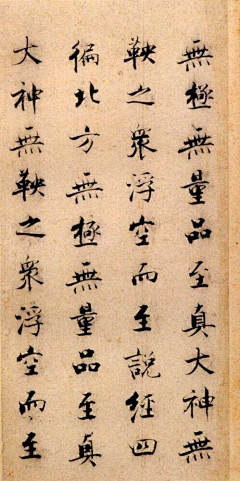 無極無量品至真大神無
鞅之衆浮空而至說經四
徧北方無極無量品至真
大神無鞅之衆浮空而至